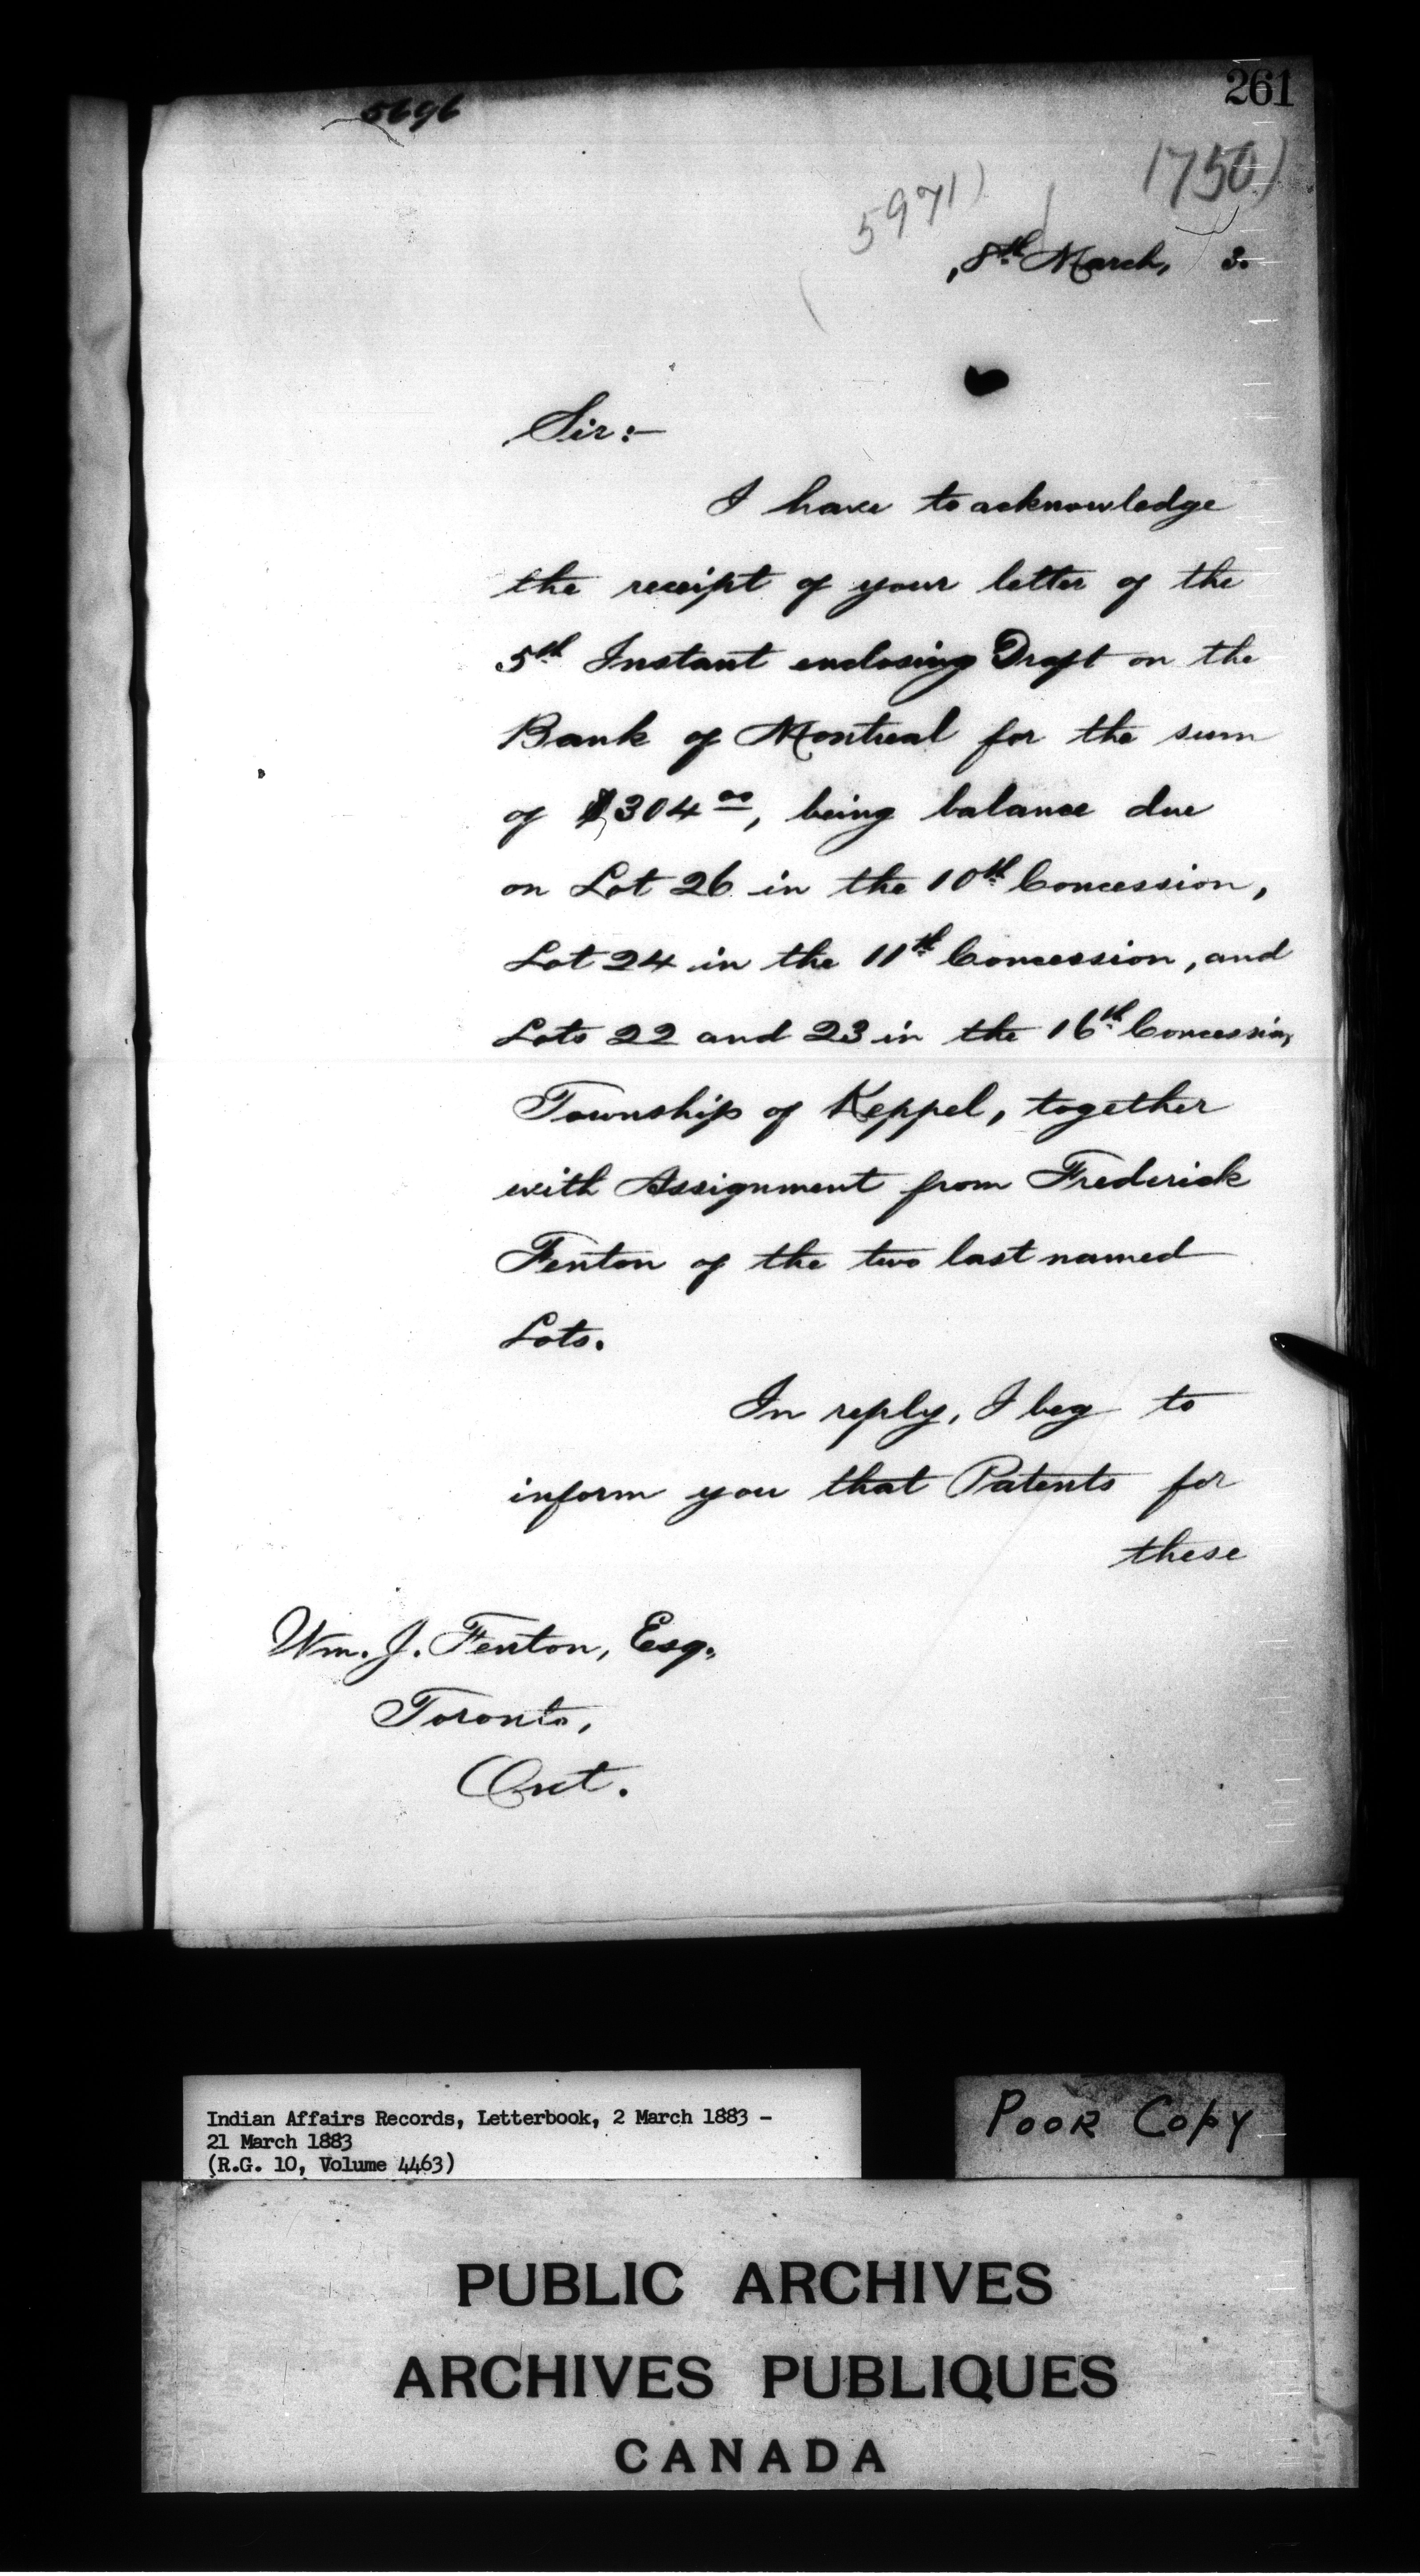 261
5696
1750)
5971)
8th March, 3.
Sir:—
I have to acknowledge
the receipt of your letter of the
5th Instant enclosing Draft on the
Bank of Montreal for the sum
of $304 00, being balance due
on Lot 26 in the 10th Concession,
Lot 24 in the 11th Concession, and
Lots 22 and 23 in the 16th Concession,
Township of Keppel, together
with Assignment from Frederick
Fenton of the two last named
Lots.
In reply, I beg to
inform you that Patents for
these
Wm. J. Fenton, Esq.,
Toronto,
Ont.
Indian Affairs Records, Letterbook, 2 March 1883 -
21 March 1883
(R.G. 10, Volume 4463)
POOR COPY
PUBLIC ARCHIVES
ARCHIVES PUBLIQUES
CANADA